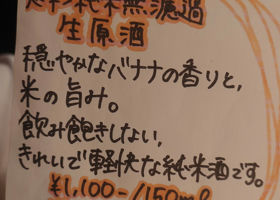 純米無濾過
生原酒
穏やかなバナナの香りと、
米の旨み。
飲み飽きしない、
きれいで軽快な純米酒です。
¥1,100-/150ml